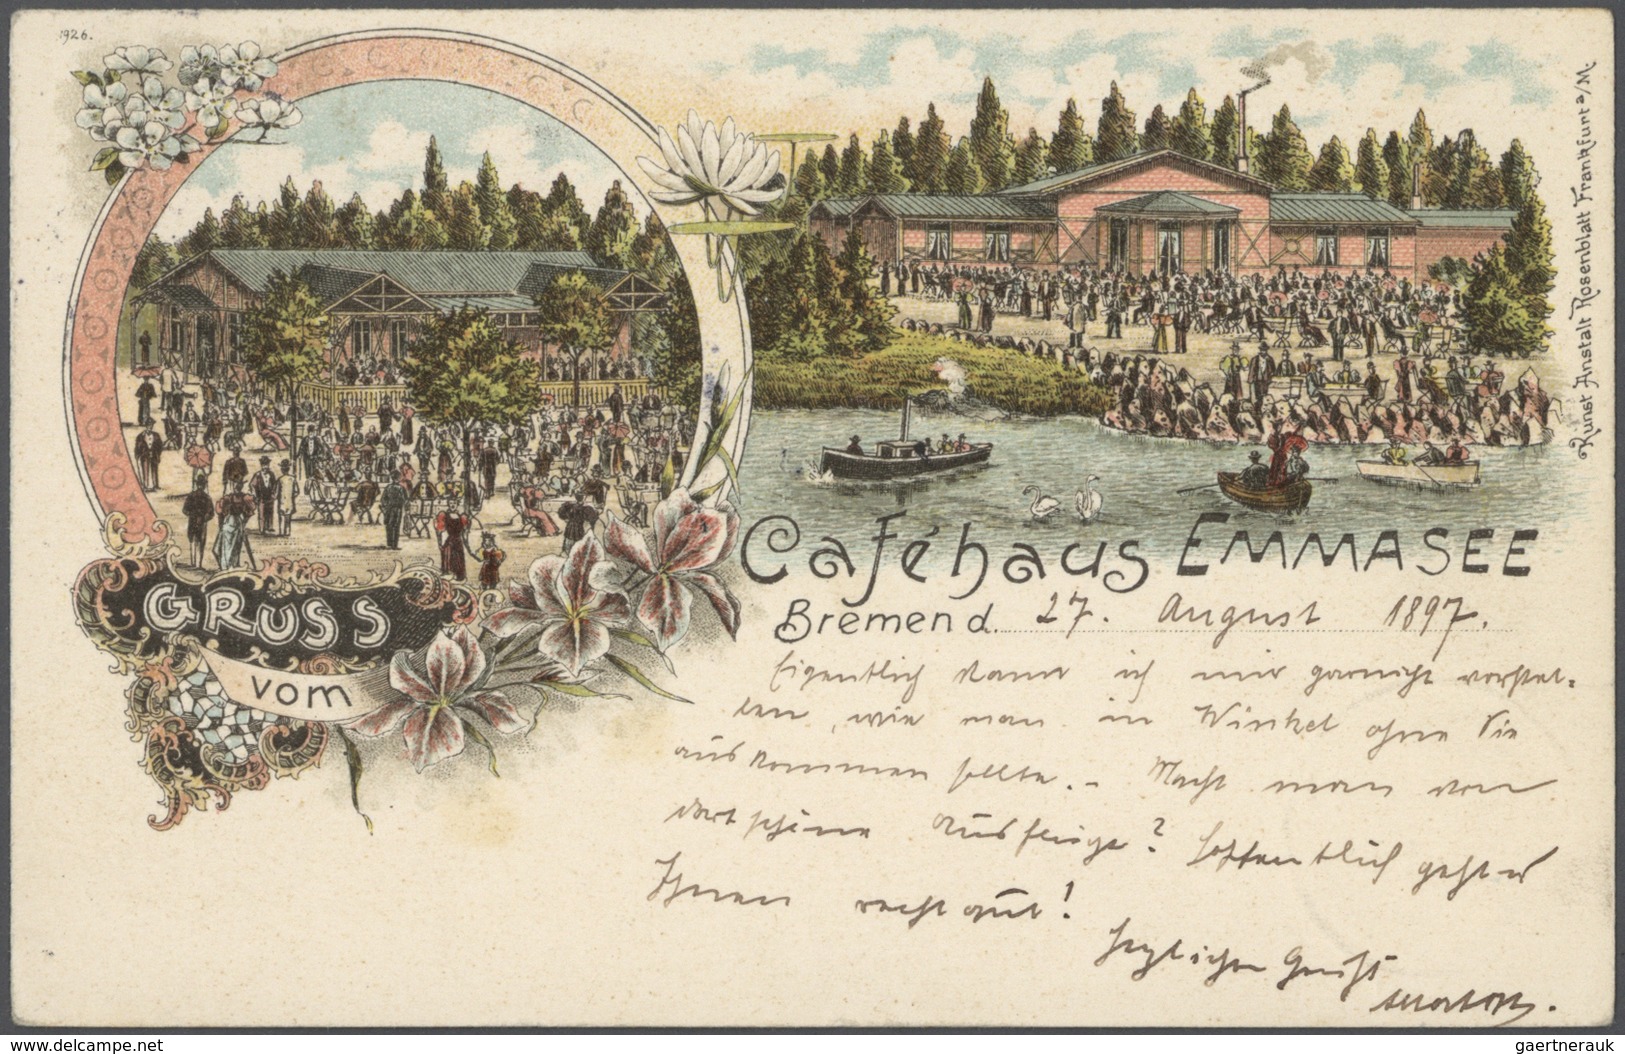 1926.
GRUSS
vom
Caféhaus EMMASEE
Bremen d. 27. August 1897.
Eigentlich kann ich mir garnicht vorstel=
len, wie man in Winkel ohne Sie
auskommen sollte. – Macht man von
dort schöne Ausflüge? Hoffentlich geht es
Ihnen recht gut!
Herzlichen Gruß
Kunst Anstalt Rosenblatt Frankfurt a/M.
delcampe.net
gaertnerauk